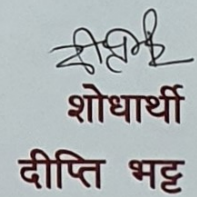 शोधार्थी
दीप्ति भट्ट